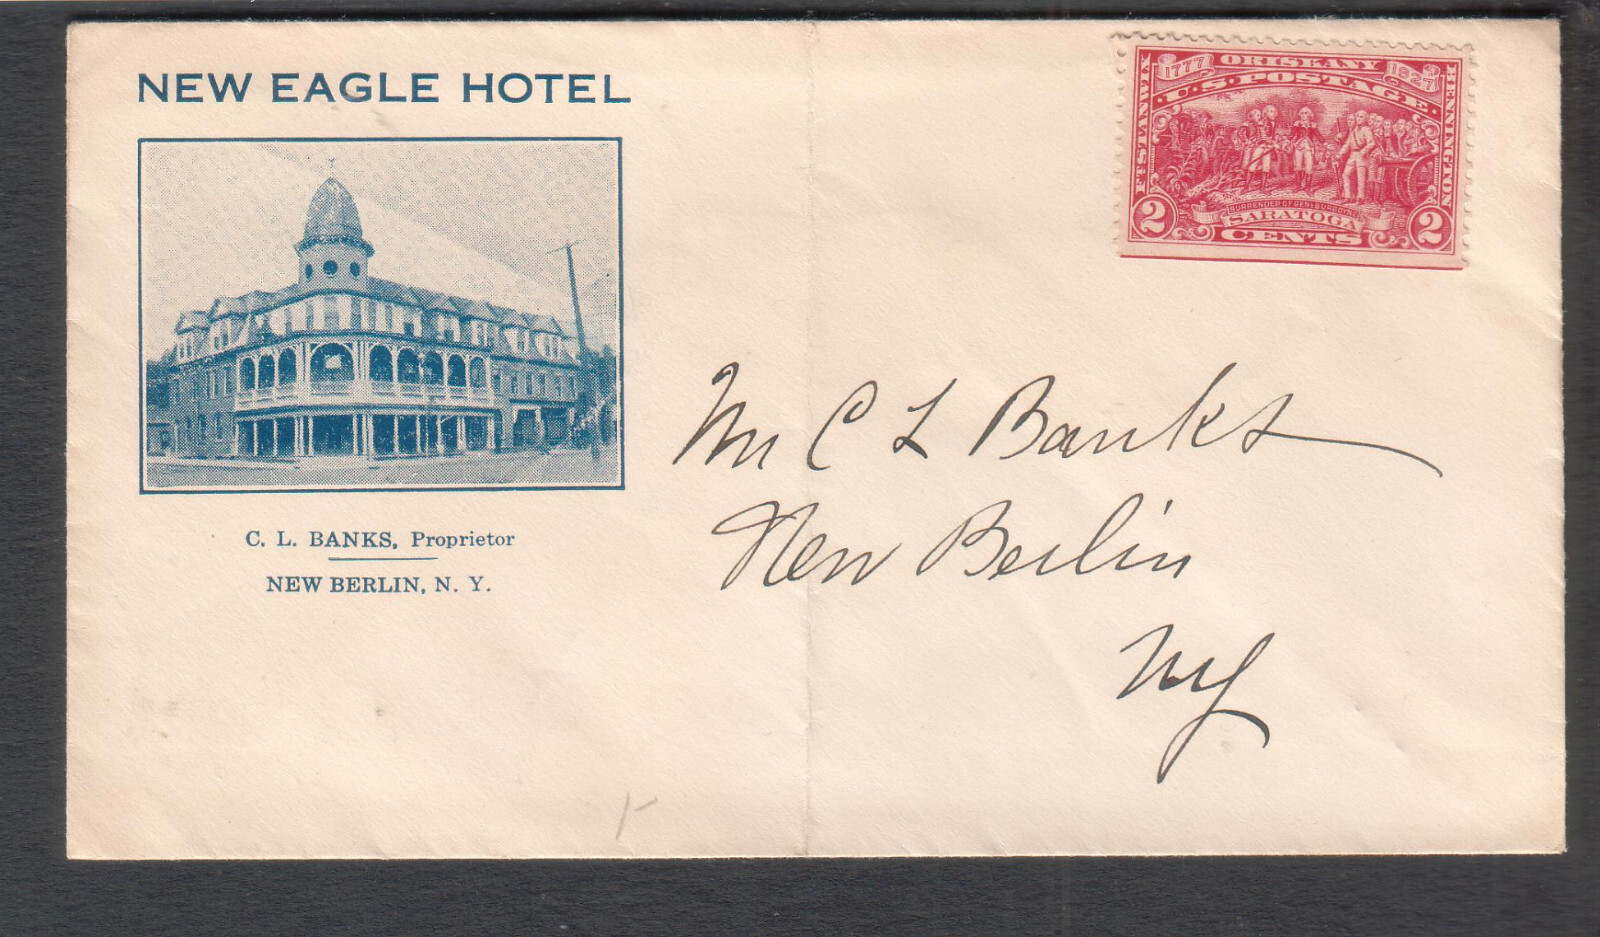 NEW EAGLE HOTEL
C. L. BANKS, Proprietor
NEW BERLIN, N. Y.
1777 ORISKANY 1927
U.S. POSTAGE
FT. STANWIX
BENNINGTON
SURRENDER OF GEN. BURGOYNE
SARATOGA
2 CENTS 2
Mr C L Banks
New Berlin
NY